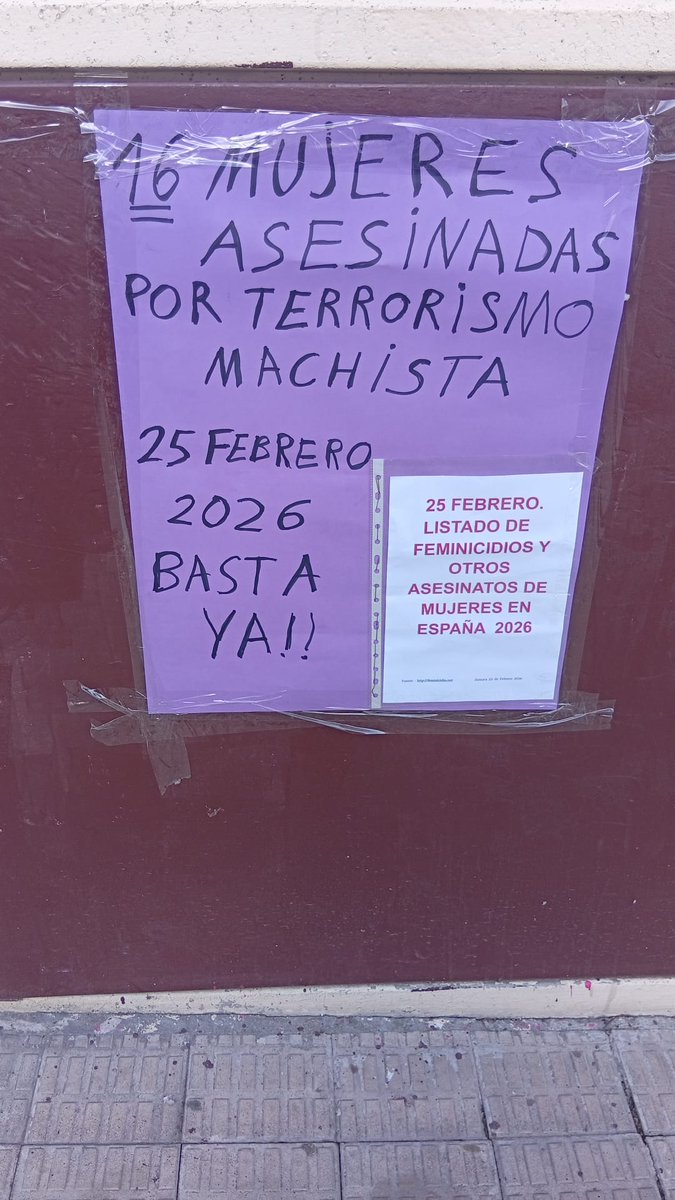 16 MUJERES
ASESINADAS
POR TERRORISMO
MACHISTA
25 FEBRERO
2026
BASTA
YA!!
25 FEBRERO.
LISTADO DE
FEMINICIDIOS Y
OTROS
ASESINATOS DE
MUJERES EN
ESPAÑA 2026
de Febrero